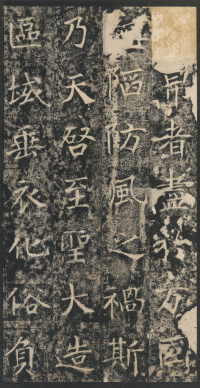 者盡
陋防風之禍斯
乃天啓至聖大造
區域垂衣化俗負